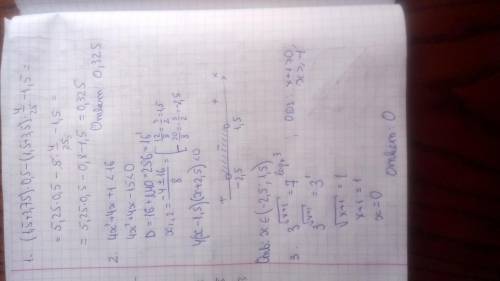 1. (1,5+3,75)·0,5-(1,5+3,5)·4/25-1,5=
=5,25·0,5-5·4/25-1,5=
=5,25·0,5-0,8-1,5=0,325
Ответ: 0,325
2. 4x²+4x+1<16
4x²+4x-15<0
D=16+240=256=16²
x₁,₂=(-4±16)/8=[12/8=3/2=1,5
-20/8=-5/2=-2,5
4(x-1,5)(x+2,5)<0
+ - + x
-2,5 1,5
Отв. x∈(-2,5; 1,5)
3. 3^√(x+1)=7^(log₇3), ОДЗ: x+1≥0,
x≥-1
3^√(x+1)=3¹
√(x+1)=1
x+1=1
x=0
Ответ: 0